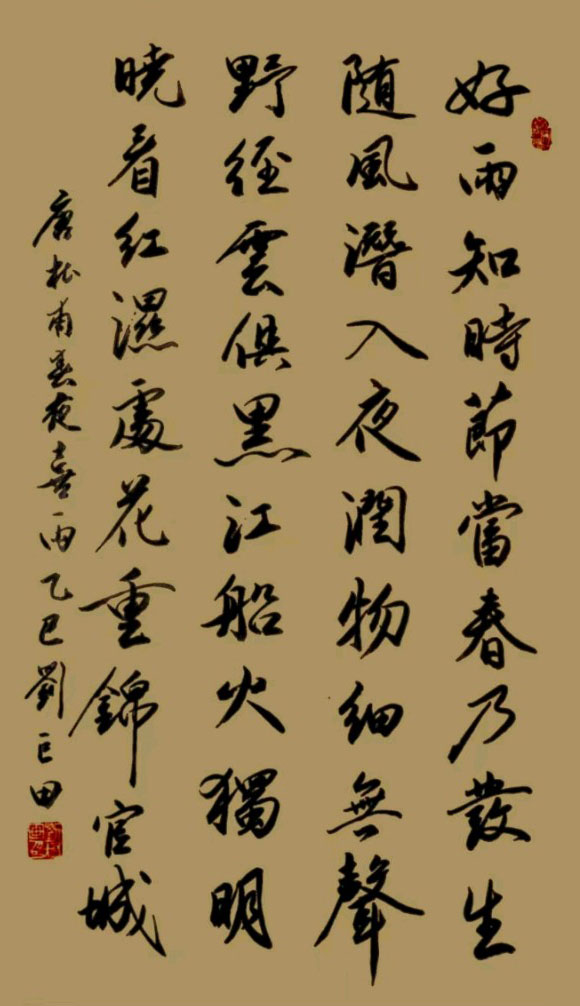 好雨知時節當春乃發生
随風潛入夜潤物細無聲
野徑雲俱黑江船火獨明
曉看紅濕處花重錦官城
唐杜甫春夜喜雨乙巳劉巨田